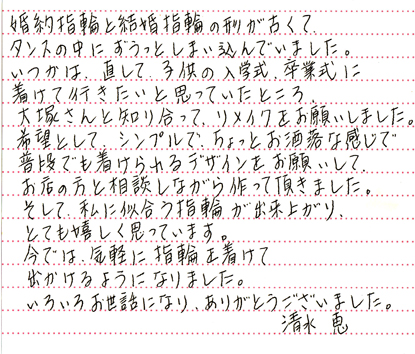 婚約指輪と結婚指輪の形が古くて、
タンスの中にずうっとしまい込んでいました。
いつかは、直して、子供の入学式、卒業式に
着けて行きたいと思っていたところ
大塚さんと知り合って、リメイクをお願いしました。
希望として、シンプルで、ちょっとお洒落な感じで
普段でも着けられるデザインをお願いして、
お店の方と相談しながら作って頂きました。
そして、私に似合う指輪が出来上がり、
とても嬉しく思っています。
今では、気軽に指輪を着けて
出かけるようになりました。
いろいろお世話になり、ありがとうございました。
清水 恵